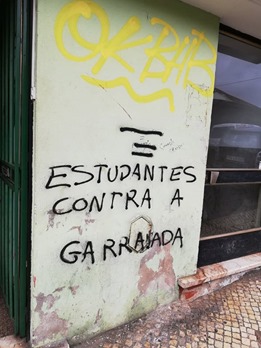 OK BAB
ESTUDANTES
CONTRA A
GARRAIADA